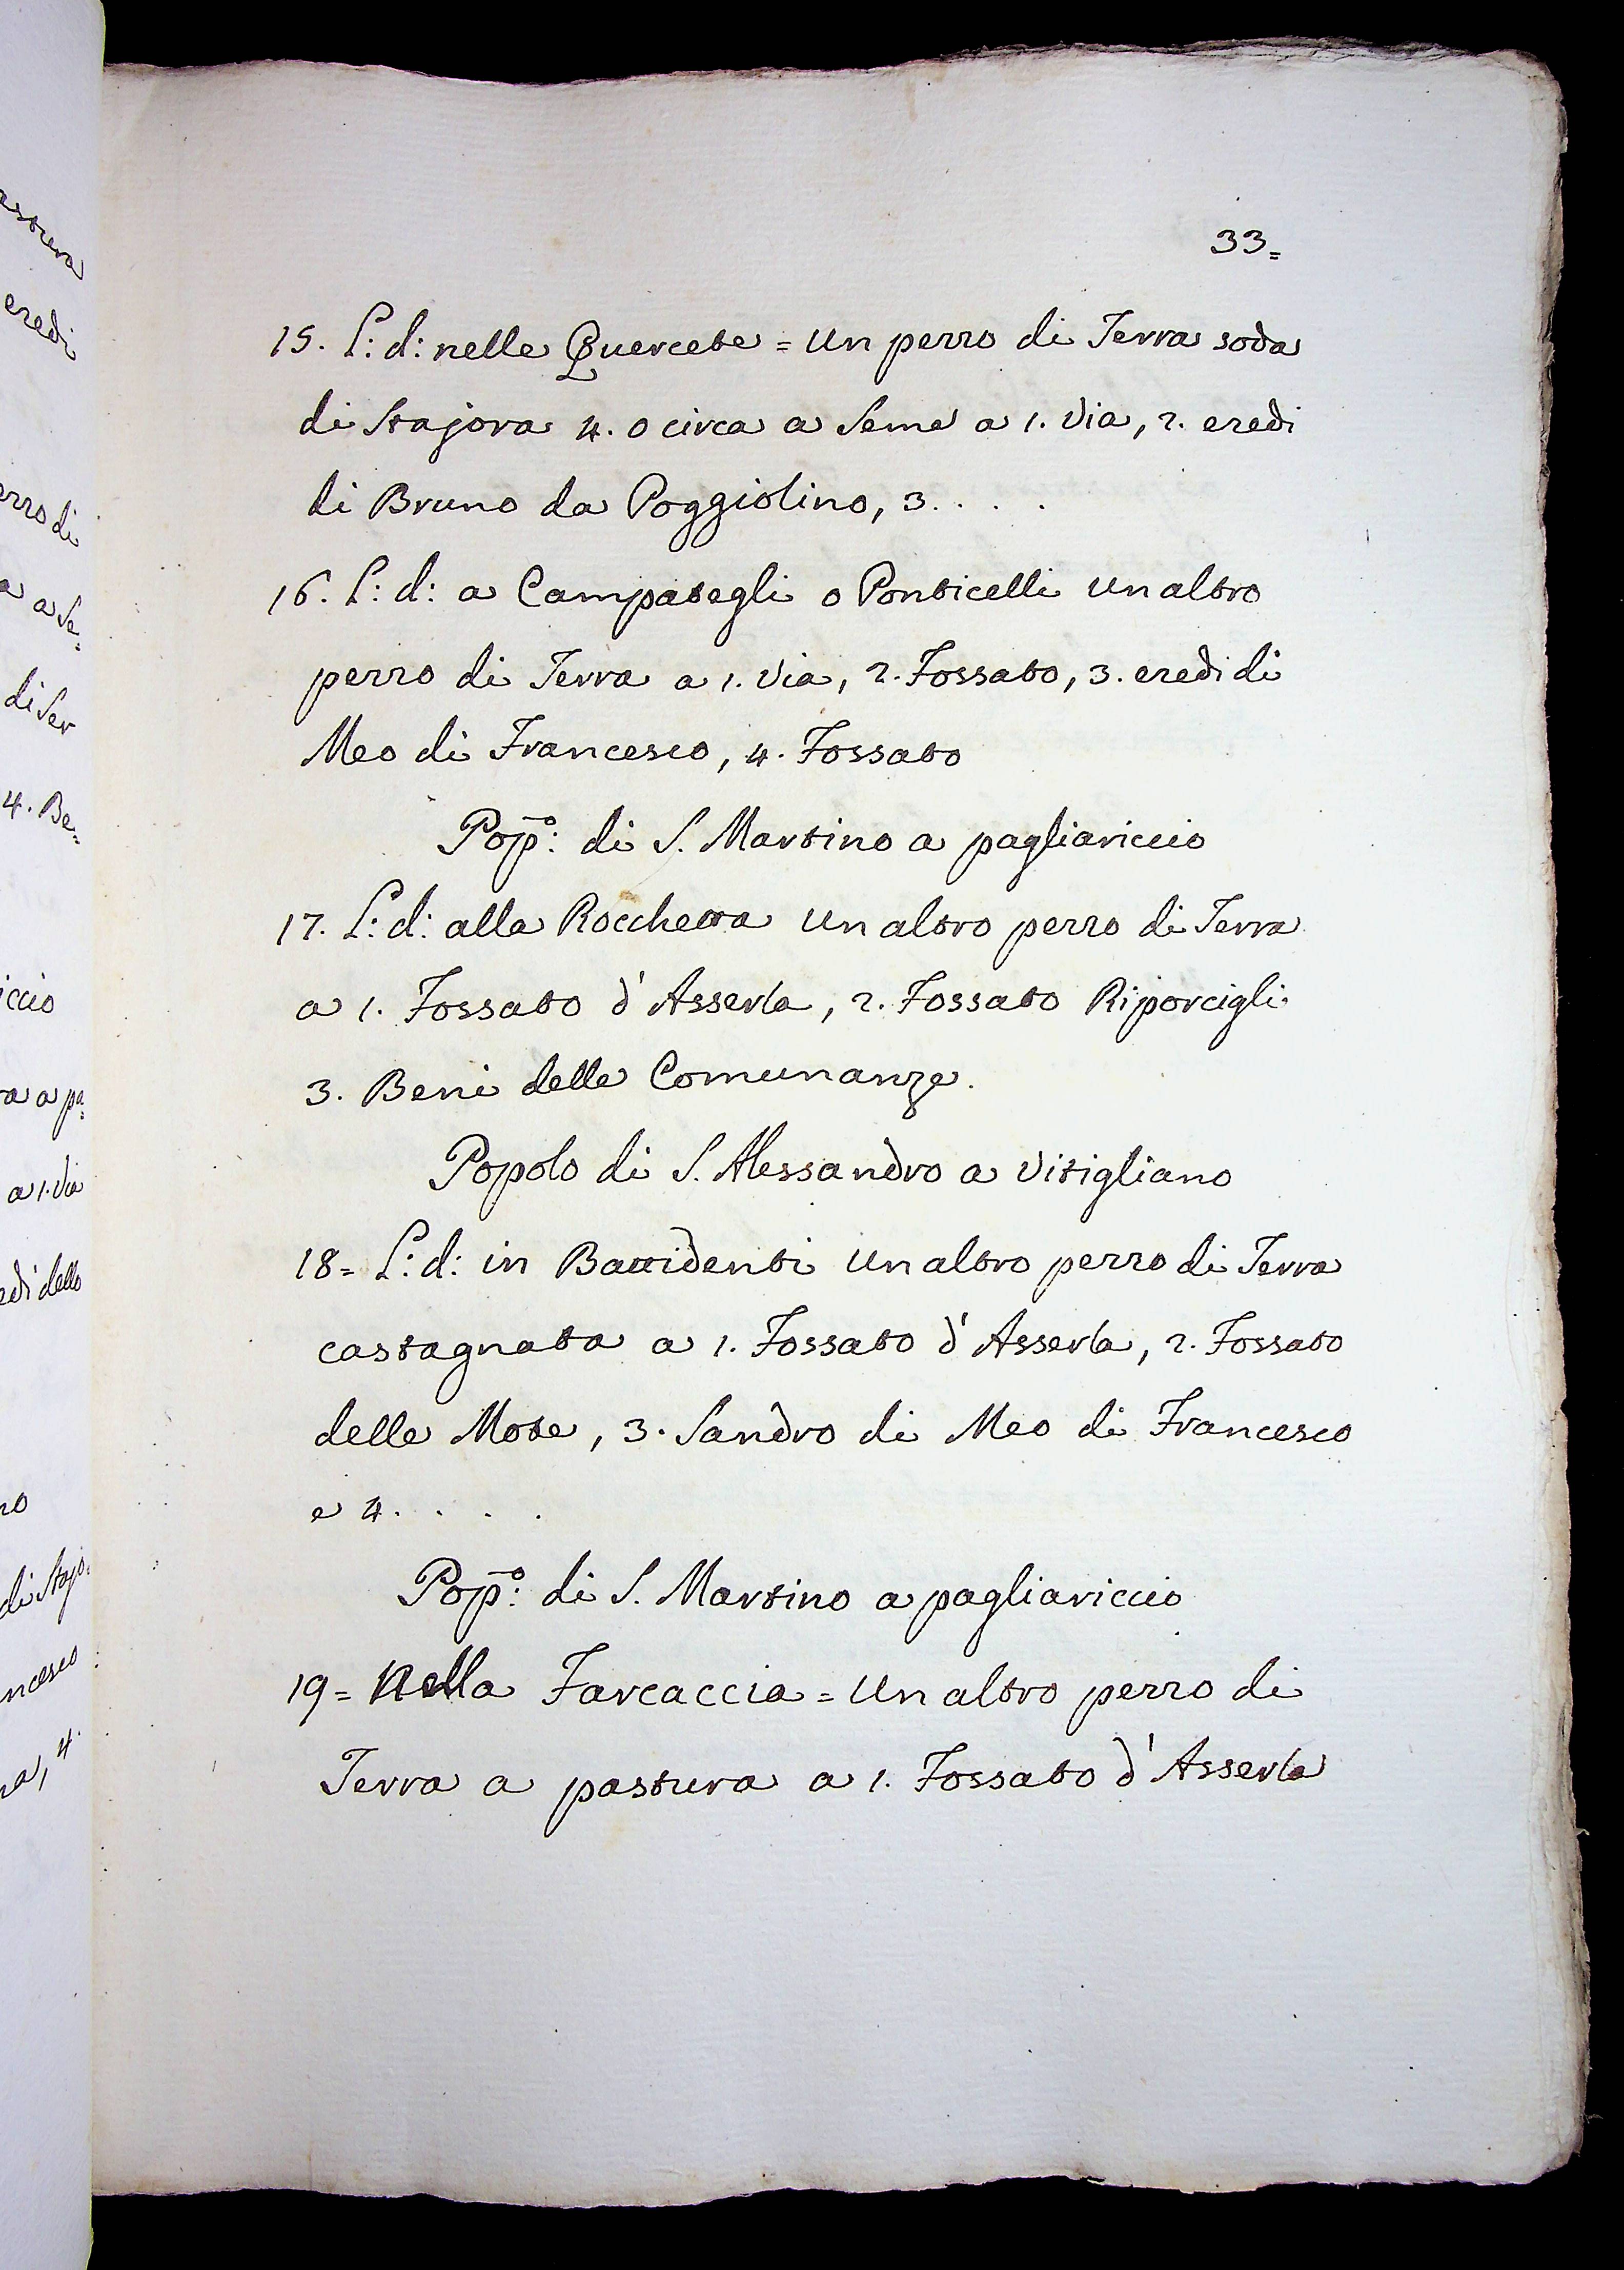 33=
15. L: d: nelle Quercete = Un pezzo di Terra soda
di Stajora 4. o circa a Seme a 1. Via, 2. eredi
di Bruno da Poggiolino, 3. . . .
16. L: d: a Campategli o Ponticelli Un altro
pezzo di Terra a 1. Via, 2. Fossato, 3. eredi di
Meo di Francesco, 4. Fossato
Popo: di S. Martino a pagliariccio
17. L: d: alla Rocchetta Un altro pezzo di Terra
a 1. Fossato d'Asserla, 2. Fossato Riporcigli
3. Beni delle Comunanze.
Popolo di S. Alessandro a Vitigliano
18= L: d: in Battidenti Un altro pezzo di Terra
castagnata a 1. Fossato d'Asserla, 2. Fossato
delle Mote, 3. Sandro di Meo di Francesco
e 4. . . .
Popo: di S. Martino a pagliariccio
19= Nella Farcaccia = Un altro pezzo di
Terra a pastura a 1. Fossato d'Asserla